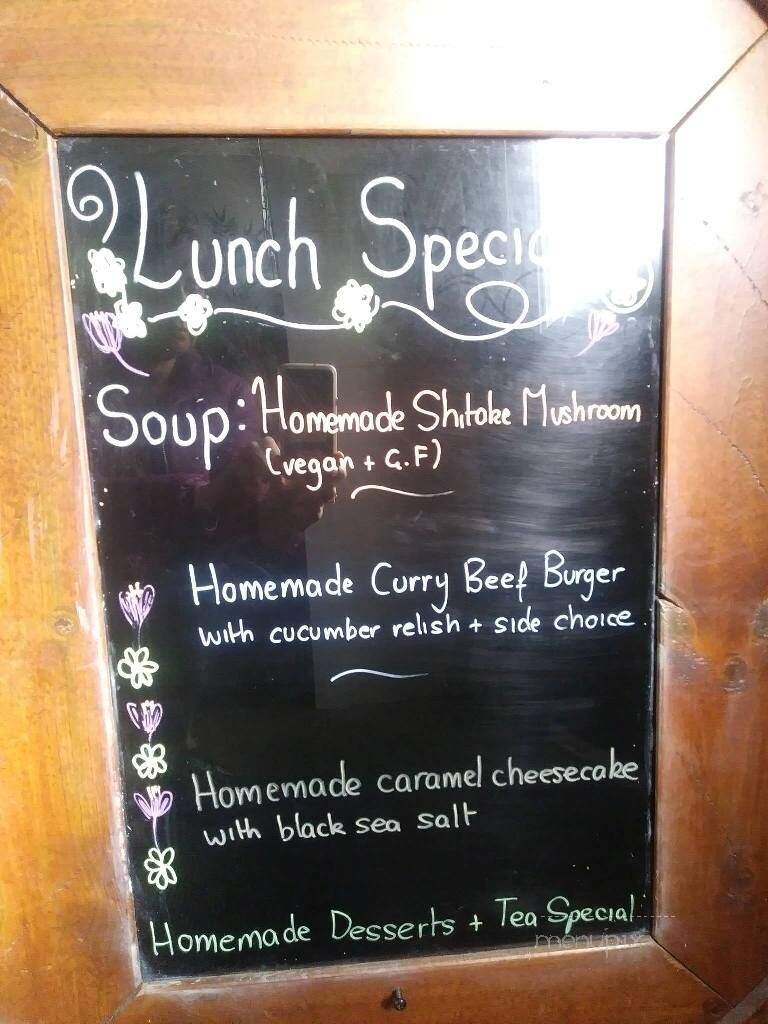 Lunch Special
Soup: Homemade Shitake Mushroom
(vegan + G.F)
Homemade Curry Beef Burger
with cucumber relish + side choice.
Homemade caramel cheesecake
with black sea salt
Homemade Desserts + Tea Special
menupix